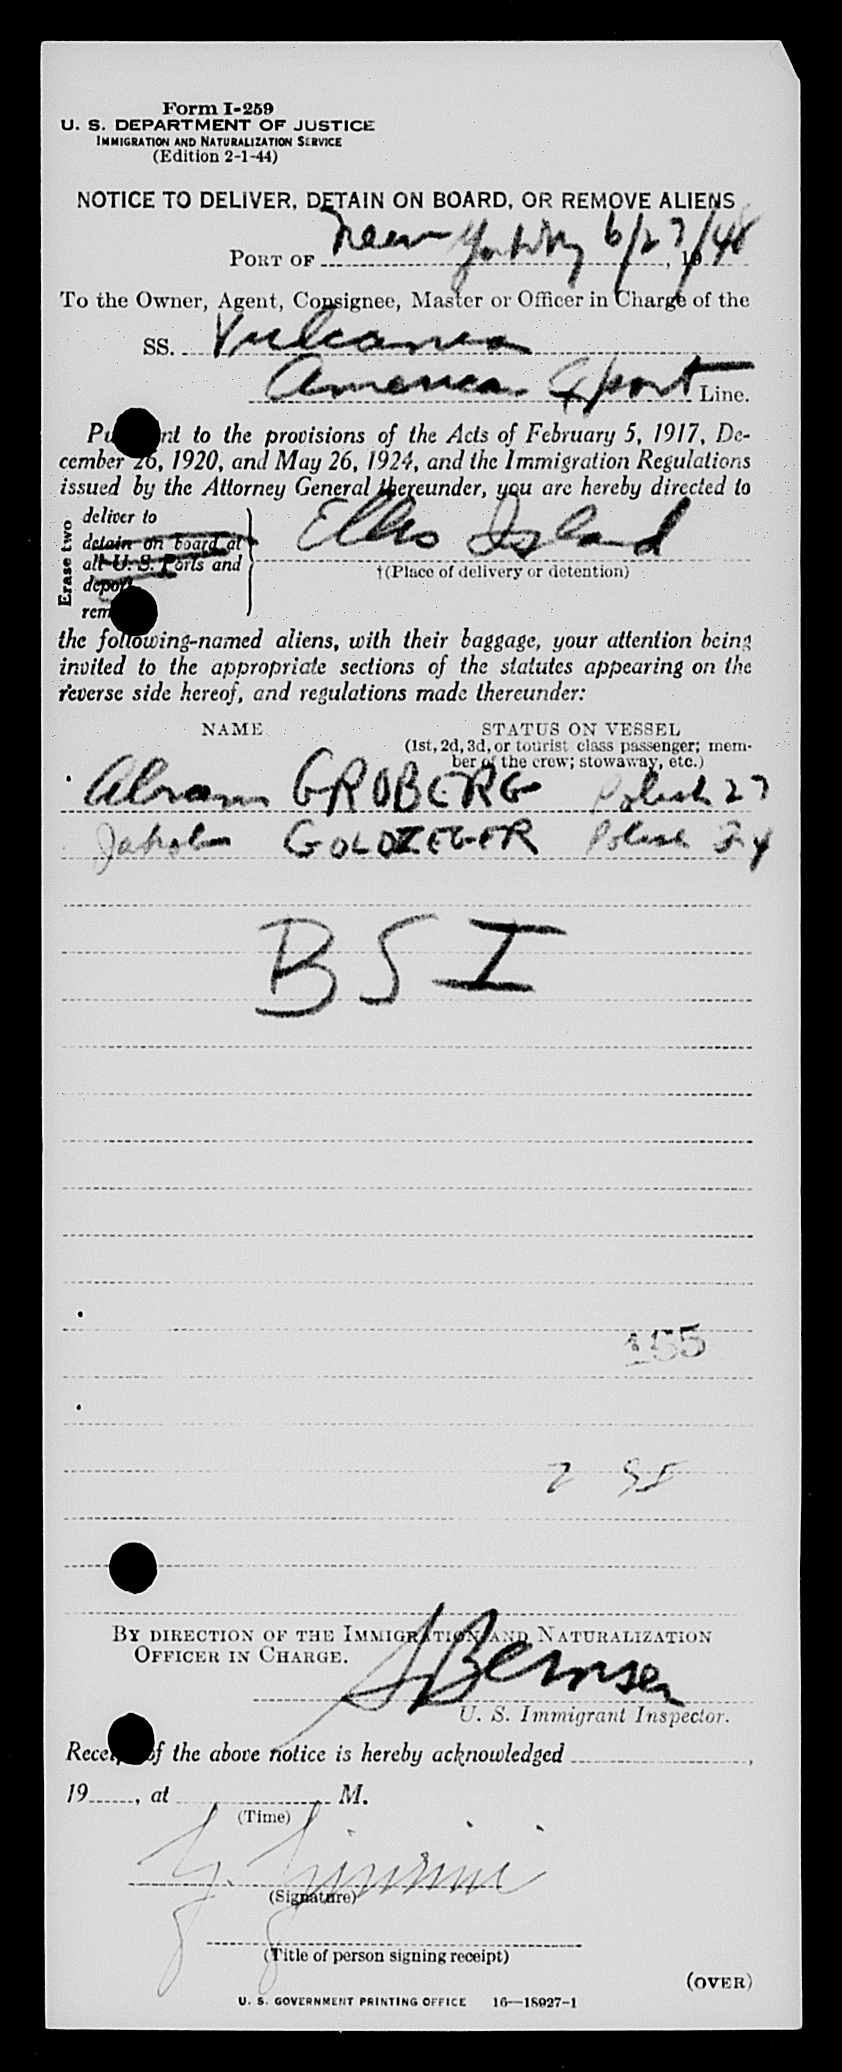 Form I-259
U. S. DEPARTMENT OF JUSTICE
IMMIGRATION AND NATURALIZATION SERVICE
(Edition 2-1-44)
NOTICE TO DELIVER, DETAIN ON BOARD, OR REMOVE ALIENS
PORT OF New York NY 6/27/48, 19
To the Owner, Agent, Consignee, Master or Officer in Charge of the
SS. Vulcania
American Export Line.
Pu nt to the provisions of the Acts of February 5, 1917, De-
cember 26, 1920, and May 26, 1924, and the Immigration Regulations
issued by the Attorney General thereunder, you are hereby directed to
Erase two
deliver to
detain on board at
all U. S. Ports and
deport
rem
Ellis Island
†(Place of delivery or detention)
the following-named aliens, with their baggage, your attention being
invited to the appropriate sections of the statutes appearing on the
reverse side hereof, and regulations made thereunder:
NAME STATUS ON VESSEL
(1st, 2d, 3d, or tourist class passenger; mem-
ber of the crew; stowaway, etc.)
Abram GROBERG Polish 27
Jakob GOLDZEGER Polish
BSI
155
2
BY DIRECTION OF THE IMMIGRATION AND NATURALIZATION
OFFICER IN CHARGE.
U. S. Immigrant Inspector.
Receipt of the above notice is hereby acknowledged ,
19 , at M.
(Time)
(Signature)
(Title of person signing receipt)
(OVER)
U. S. GOVERNMENT PRINTING OFFICE 16—18927-1